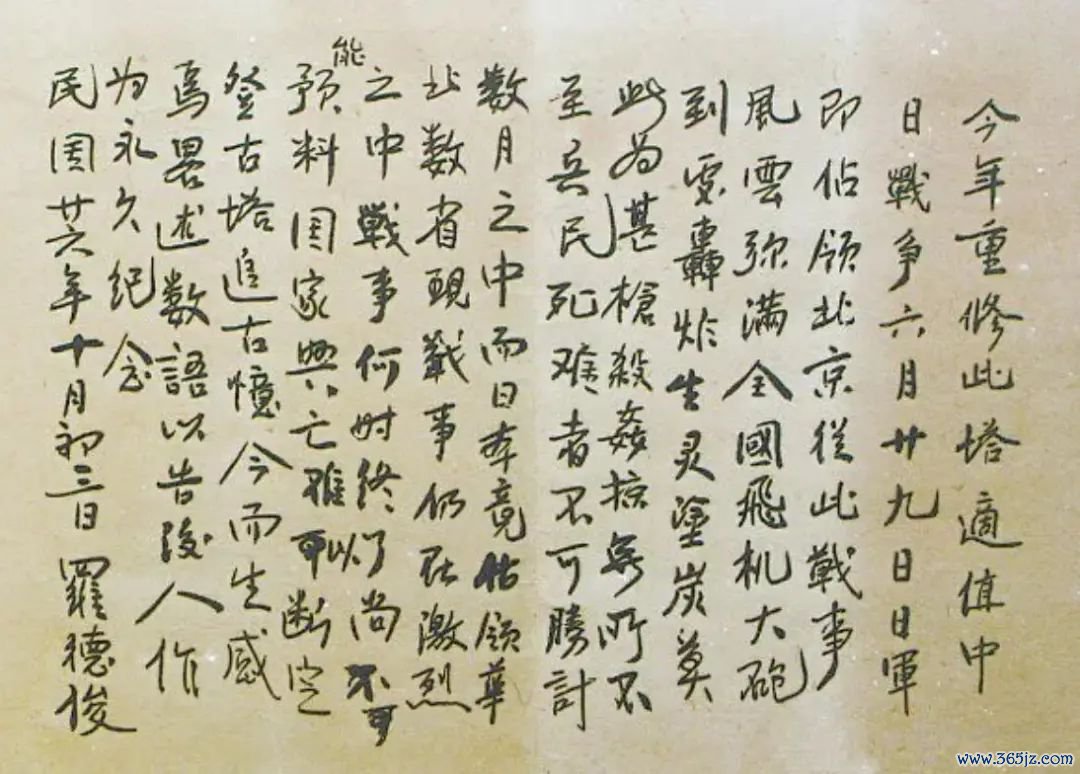 今年重修此塔適值中
日戰争六月廿九日日軍
即佔領北京従此戰事
風雲弥满全國飛机大砲
到處轟炸生灵塗炭莫
此为甚槍殺姦掠無所不
至兵民死难者不可勝計
数月之中而日本竟佔領華
北数省現戰事仍在激烈
之中戰事何时终了尚不可
能
预料国家興亡难以断定
登古塔追古憶今而生感
焉畧述数語以告後人作
为永久纪念
民国廿六年十月初三日羅德俊
www.365jz.com